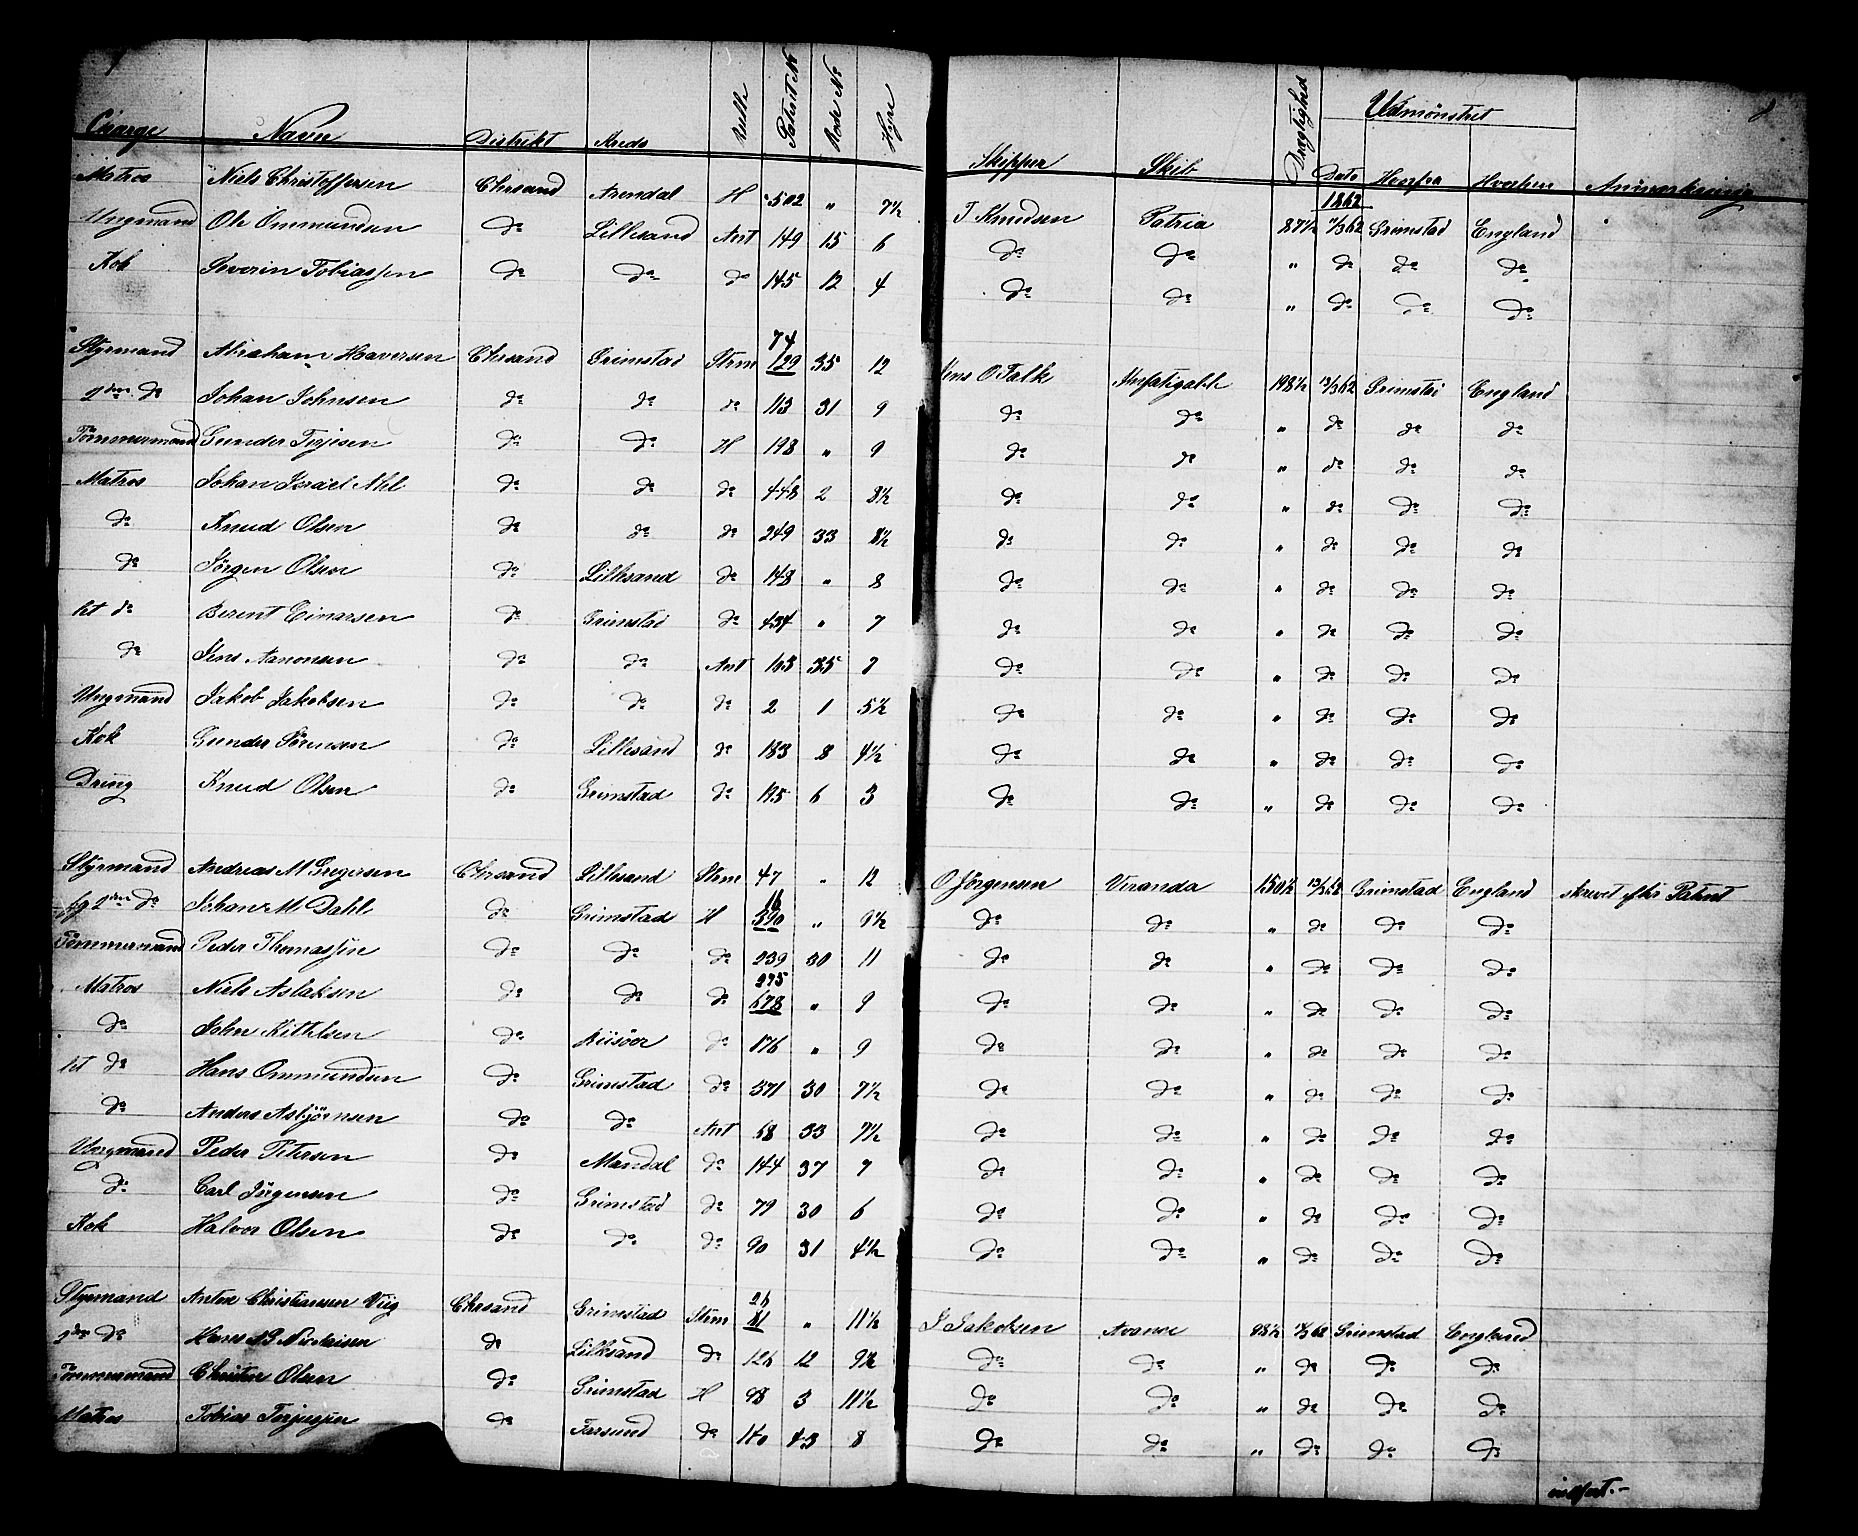 Charge Navn Distrikt Kreds Rulle Patent No Rode No Hyre Skipper Skib Drægtighed Udmønstret Dato Herfra Hvorhen Anmærkning
1862
Matros Niels Christoffersen Chrsand Arendal H 502 " 7½ T Knudsen Patria 87½ 11/3 62 Grimstad England
Ungmand Ole Ommundsen do Lillesand Ant 149 15 6 do do " do do do
Kok Severin Tobiassen do do do 145 12 4 do do " do do do
Styrmand Abraham Haversen Chrsand Grimstad Strm 74 129 35 12 Jens O Falk Unfatigable 198½ 13/3 62 Grimstad England
2den do Johan Johnsen do do do 113 31 9 do do " do do do
Tømmermand Gunder Terjesen do do H 198 " 9 do do " do do do
Matros Johan Israel do do do 448 2 8½ do do " do do do
do Knud Olsen do do do 249 33 8½ do do " do do do
do Jörgen Olsen do Lillesand do 148 " 8 do do " do do do
let do Berent Einarsen do Grimstad do 434 " 7 do do " do do do
do Jens Aanonsen do do Ant 35 7 do do " do do do
Ungmand Jakob Jakobsen do do do 2 1 5½ do do " do do do
Kok Gunder Sörensen do Lillesand do 183 8 4½ do do " do do do
Dreng Knud Olsen do Grimstad do 195 6 3 do do " do do do
Styrmand Andreas M Gregersen Chrsand Lillesand Strm 47 " 12 O Jörgensen Veranda 150½ 13/3 62 Grimstad England skrevet efter Patent
fg 2den do Johan M Dahl do Grimstad H 16 390 " 9½ do do " do do do
Tømmermand Peder Thomassen do do do 239 30 11 do do " do do do
Matros Niels Aslaksen do do do 275 678 " 9 do do " do do do
do John Kittelsen do Riisöer do 176 " 9 do do " do do do
let do Hans Ommundsen do Grimstad do 371 30 7½ do do " do do do
do Anders Asbjörnsen do do Ant 68 33 7½ do do " do do do
Ungmand Peder Petersen do Mandal do 144 37 7 do do " do do do
do Carl Jörgensen do Grimstad do 79 30 6 do do " do do do
Kok Halvor Olsen do do do 90 31 4½ do do " do do do
Styrmand Anton Christiansen Viig Chrsand Grimstad Strm 26 81 " 11½ J Jakobsen Avance 98½ 62 Grimstad England
2den do Hans Nicolaisen do Lillesand do 126 12 9½ do do " do do do
Tømmermand Christen Olsen do Grimstad H 98 3 11½ do do " do do do
Matros Tobias Terjesen do Farsund do 140 43 8 do do " do do do
indført.-